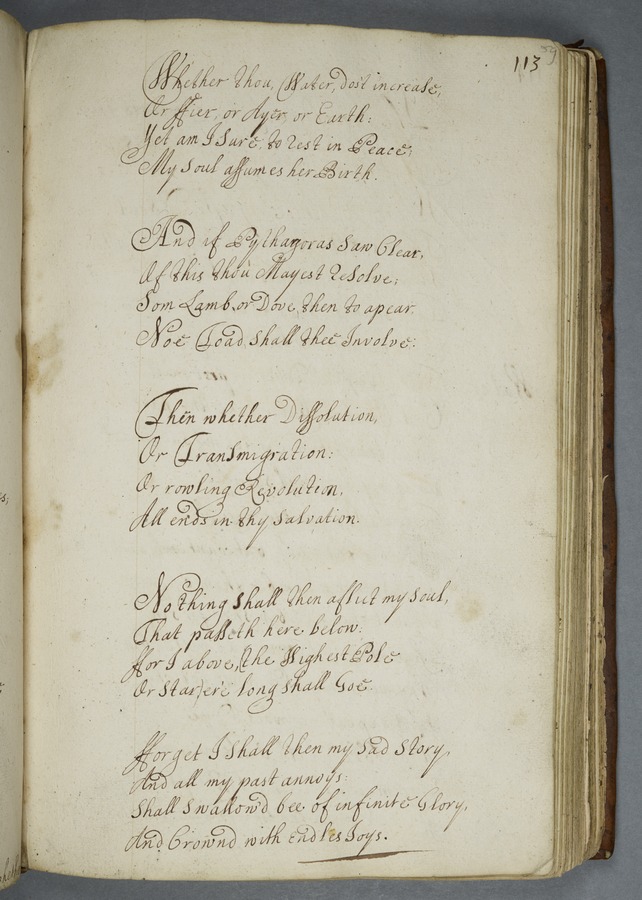 113
59
Whether thou, Water, dost increase,
Or ffier, or Ayer, or Earth:
Yet am I Sure, to rest in Peace,
My Soul assumes her Birth.
And if Pythagoras Saw Clear,
Of this thou Mayest resolve;
Som Lamb, or Dove, then to apear
Noe Toad, shall thee Involve:
Then whether Dissolution,
Or Transmigration:
Or rowling Revolution,
All ends in thy Salvation.
Nothing shall then aflict my Soul,
That passeth here below:
ffor I above, the Highest Pole
Or Star, ere long shall Goe.
fforget I shall then my Sad Story,
And all my past annoys:
Shall Swallow'd bee of infinite Glory,
And Crownd with endles Joys.